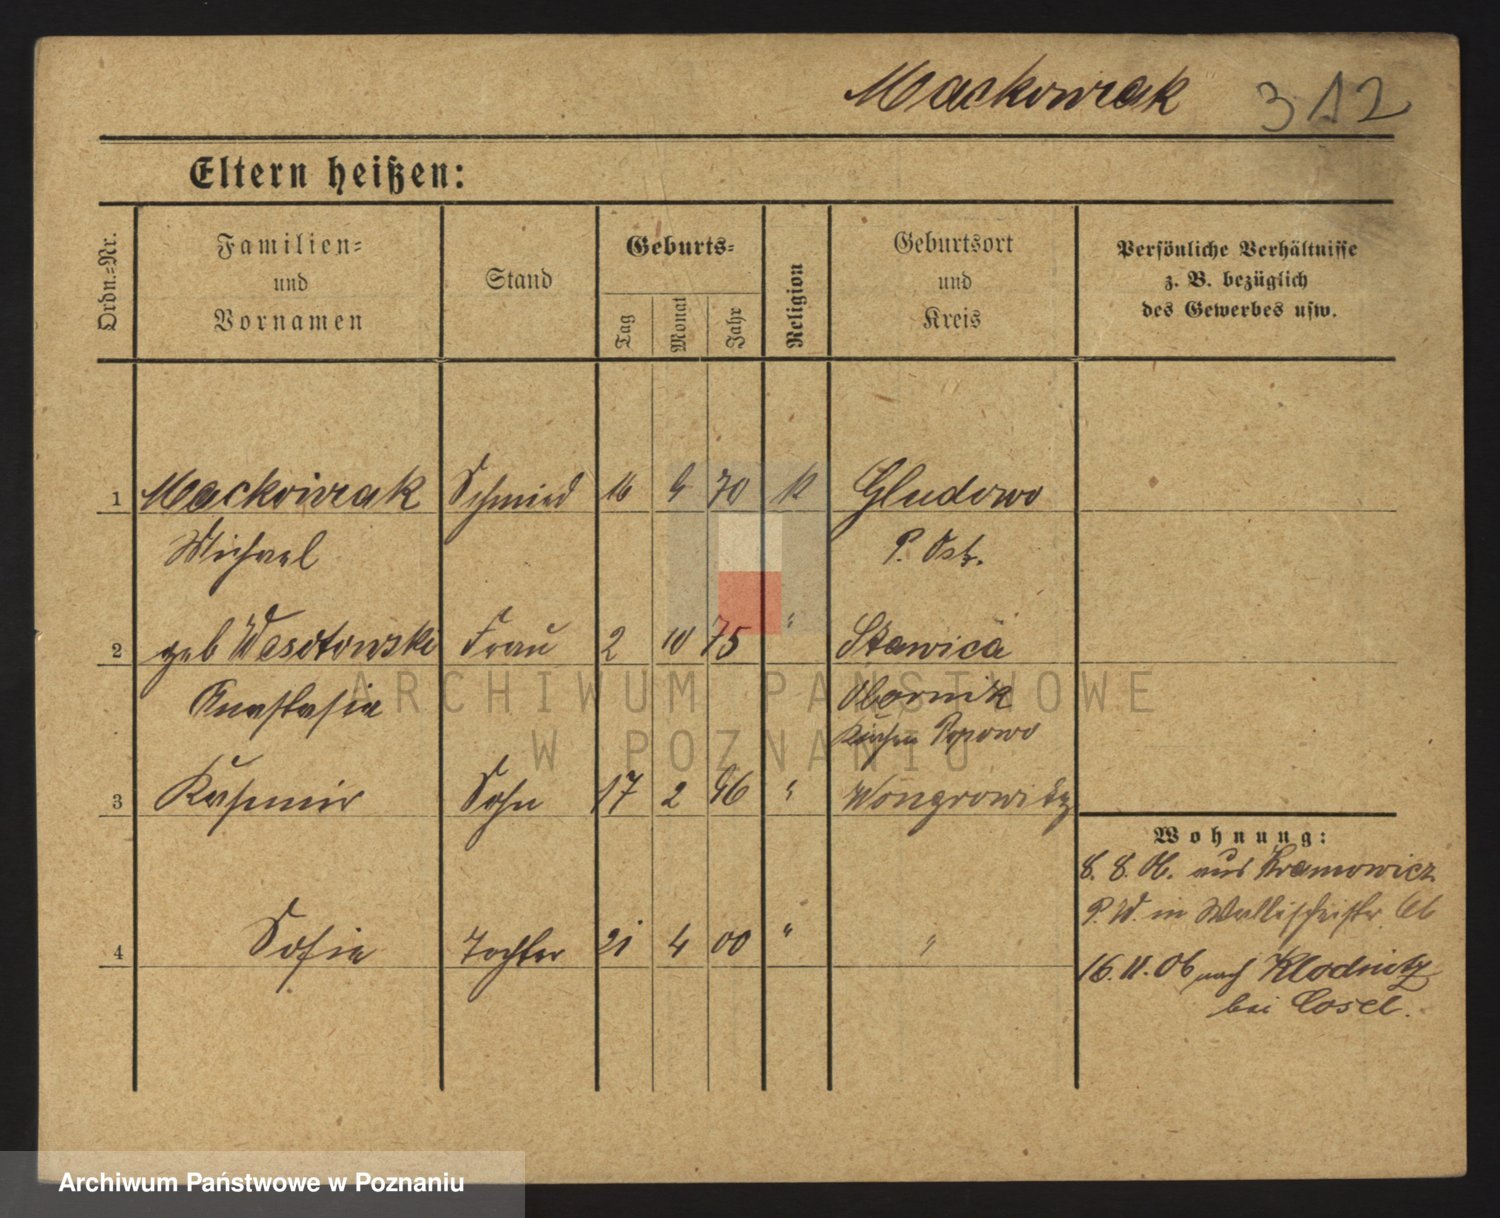 Mackowiak 312
Eltern heißen:
Ordn.-Nr.
Familien-
und
Vornamen
Stand
Geburts-
Tag
Monat
Jahr
Religion
Geburtsort
und
Kreis
Persönliche Verhältnisse
z. B. bezüglich
des Gewerbes usw.
1 Mackowiak Schmied 16 9 70 K Gludowo
Michael P. Ost.
2 geb Wesołowski Frau 2 10 75 " Sławica
Anastasia Obornik
Kirchen Popowo
3 Kasimir Sohn 17 2 96 " Wongrowitz
Wohnung:
8. 8. 06. aus Kramowicz
P. W. in Wallischeistr.
4 Sofie Tochter 21 4 00 " "
16. 11. 06 nach Klodnitz
bei Cosel.
ARCHIWUM PAŃSTWOWE
W POZNANIU
Archiwum Państwowe w Poznaniu